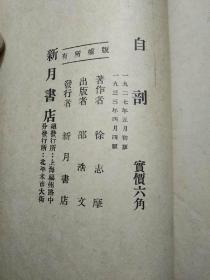 自剖
實價六角
一九二七年五月初版
一九三三年四月四版
版權所有
著作者 徐志摩
出版者 邵浩文
發行者 新月書店
新月書店
總發行所：上海福州路中
分發行所：北平米市大街